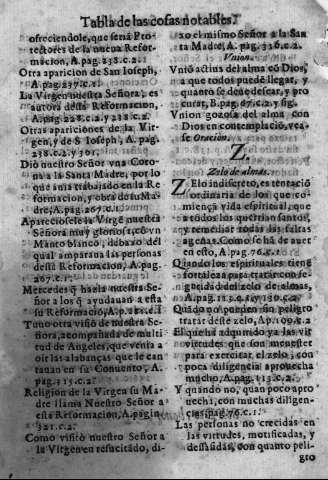 Tabla de las cosas notables.
ofreciendole, que seria Pro-
tectores de la nueva Refor-
macion, A. pag. 238. c. 2.
Otra aparicion de San Ioseph,
A. pag. 297. c. 1.
La Virgen nuestra Señora, es
autora desta Reformacion,
A. pag. 228. c. 2. y 238. c. 2.
Otras apariciones de la Vir-
gen, y de S. Ioseph, A. pag.
238. c. 2. y 301.
Diò nuestro Señor vna Coro-
na a la Santa Madre, por lo
que auia trabajado en la Re-
formacion, y obra de su Ma-
dre, A. pag. 267. c. 1.
Apareciosele la Virgē nuestra
Señora muy gloriosa, cō vn
Manto blanco, debaxo del
qual amparaua las personas
desta Reformacion, A. pag.
267. c. 1.
Mercedes q̄ hazia nuestro Se-
ñor a los q̄ ayudauan a esta
su Reformaciō, A. p. 281. c. 1
Tuuo otra visiō de nuestra Se-
ñora, acompañada de multi-
tud de Angeles, que venia a
oir las alabanças que le can-
tauan en su Conuento, A.
pag. 315. c. 2.
Religion de la Virgen su Ma-
dre llama Nuestro Señor a
esta Reformacion, A. pagin.
321. c. 2.
Como visitò nuestro Señor a
la Virgen en resucitado, di-
zo el mismo Señor a la San-
ta Madre, A. pag. 336. c. 2.
Vnion.
Vniō actiua del alma cō Dios,
a que todos puedē llegar, y
quanto se deue desear, y pro
curar, B. pag. 67. c. 2. y sig.
Vnion gozosa del alma con
Dios en contemplaciō, vea-
se Oracion.
Z.
Zelo de almas.
Zelo indiscreto, es tentaciō
ordinaria de los que co-
miençā vida espiritual, que
a todos los querrian santos,
y remediar todas las faltas
agenas. Como se hà de auer
en esto, A. pag. 76. c. 1.
Quando los espirituales tienē
fortaleza para tratar con se-
guridad del zelo de almas,
A. pag. 113. c. 2. y 130. c. 2.
Quādo no pueden sin peligro
tratar deste zelo, A. p. 109. c. 2
El que hà adquirido ya las vir
virtudes que son menester
para exercitar el zelo, con
poca diligencia aprouecha
mucho, A. pag. 113. c. 2.
Y quando no, quan poco apro
uecha, con muchas diligen-
cias, pag. 76. c. 1.
Las personas no crecidas en
las virtudes, mortificadas, y
desasidas, con quanto peli-
gro